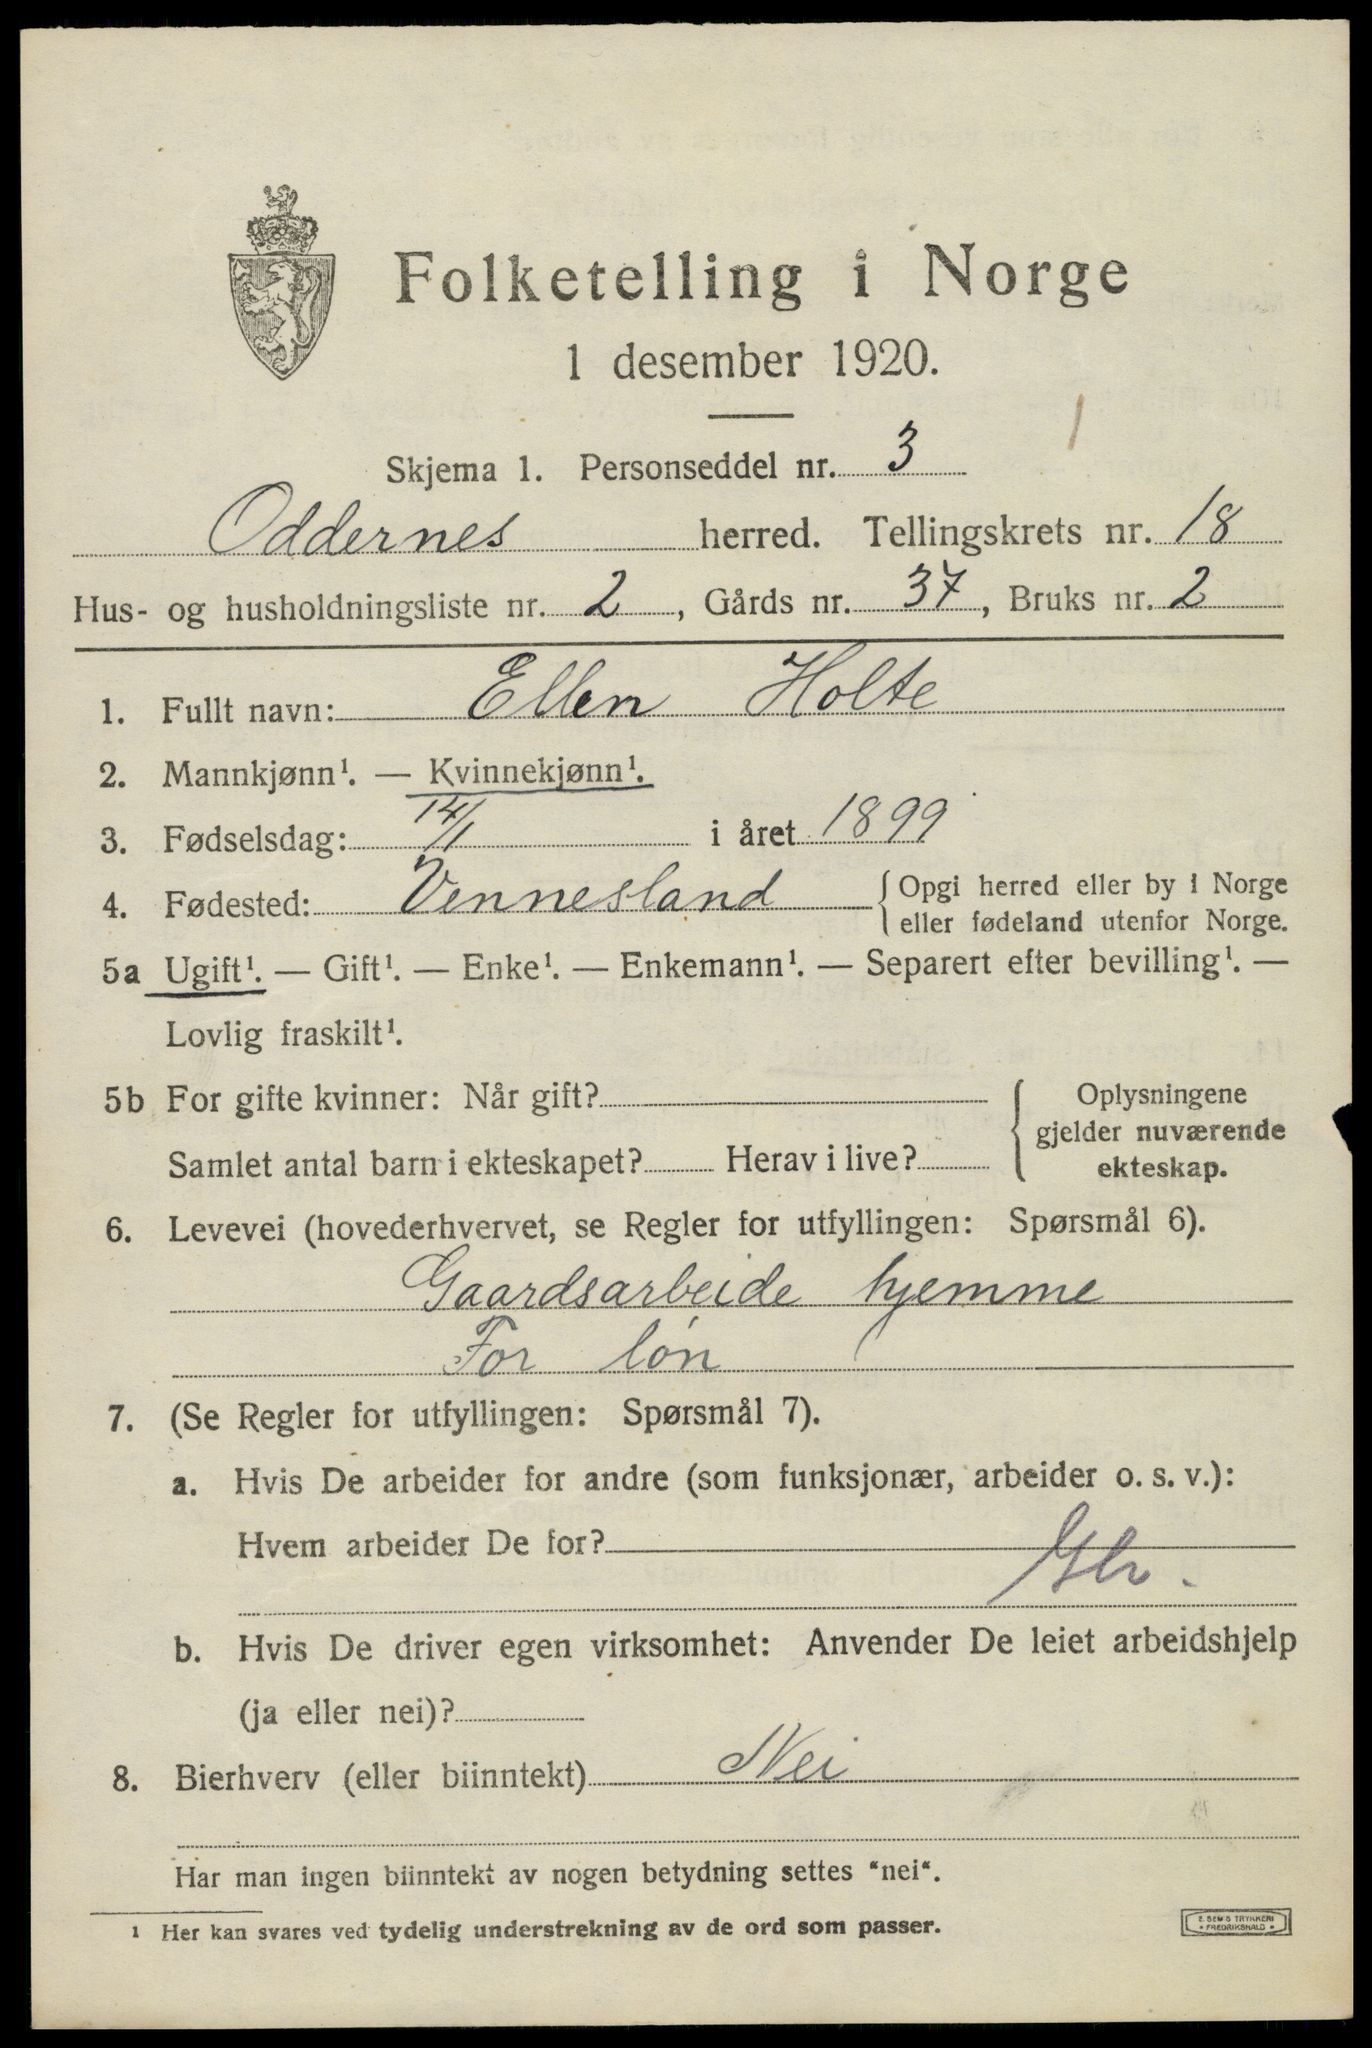 Folketelling i Norge
1 desember 1920.
Skjema 1. Personseddel nr. 3
Oddernes herred. Tellingskrets nr. 18
Hus- og husholdningsliste nr. 2, Gårds nr. 37, Bruks nr. 2
1. Fullt navn: Ellen Holte
2. Mannkjønn¹. — Kvinnekjønn¹.
3. Fødselsdag: 14/1 i året 1899
4. Fødested: Vennesland { Opgi herred eller by i Norge
eller fødeland utenfor Norge.
5a Ugift¹. — Gift¹. — Enke¹. — Enkemann¹. — Separert efter bevilling¹. —
Lovlig fraskilt¹.
5b For gifte kvinner: Når gift?
Samlet antal barn i ekteskapet? Herav i live?
Oplysningene
gjelder nuværende
ekteskap.
6. Levevei (hovederhvervet, se Regler for utfyllingen: Spørsmål 6).
Gaardsarbeide hjemme
For løn
7. (Se Regler for utfyllingen: Spørsmål 7).
a. Hvis De arbeider for andre (som funksjonær, arbeider o. s. v.):
Hvem arbeider De for?
b. Hvis De driver egen virksomhet: Anvender De leiet arbeidshjelp
(ja eller nei)?
8. Bierhverv (eller biinntekt) Nei
Har man ingen biinntekt av nogen betydning settes "nei".
¹ Her kan svares ved tydelig understrekning av de ord som passer.
E. SEM'S TRYKKERI
• FREDRIKSHALD •